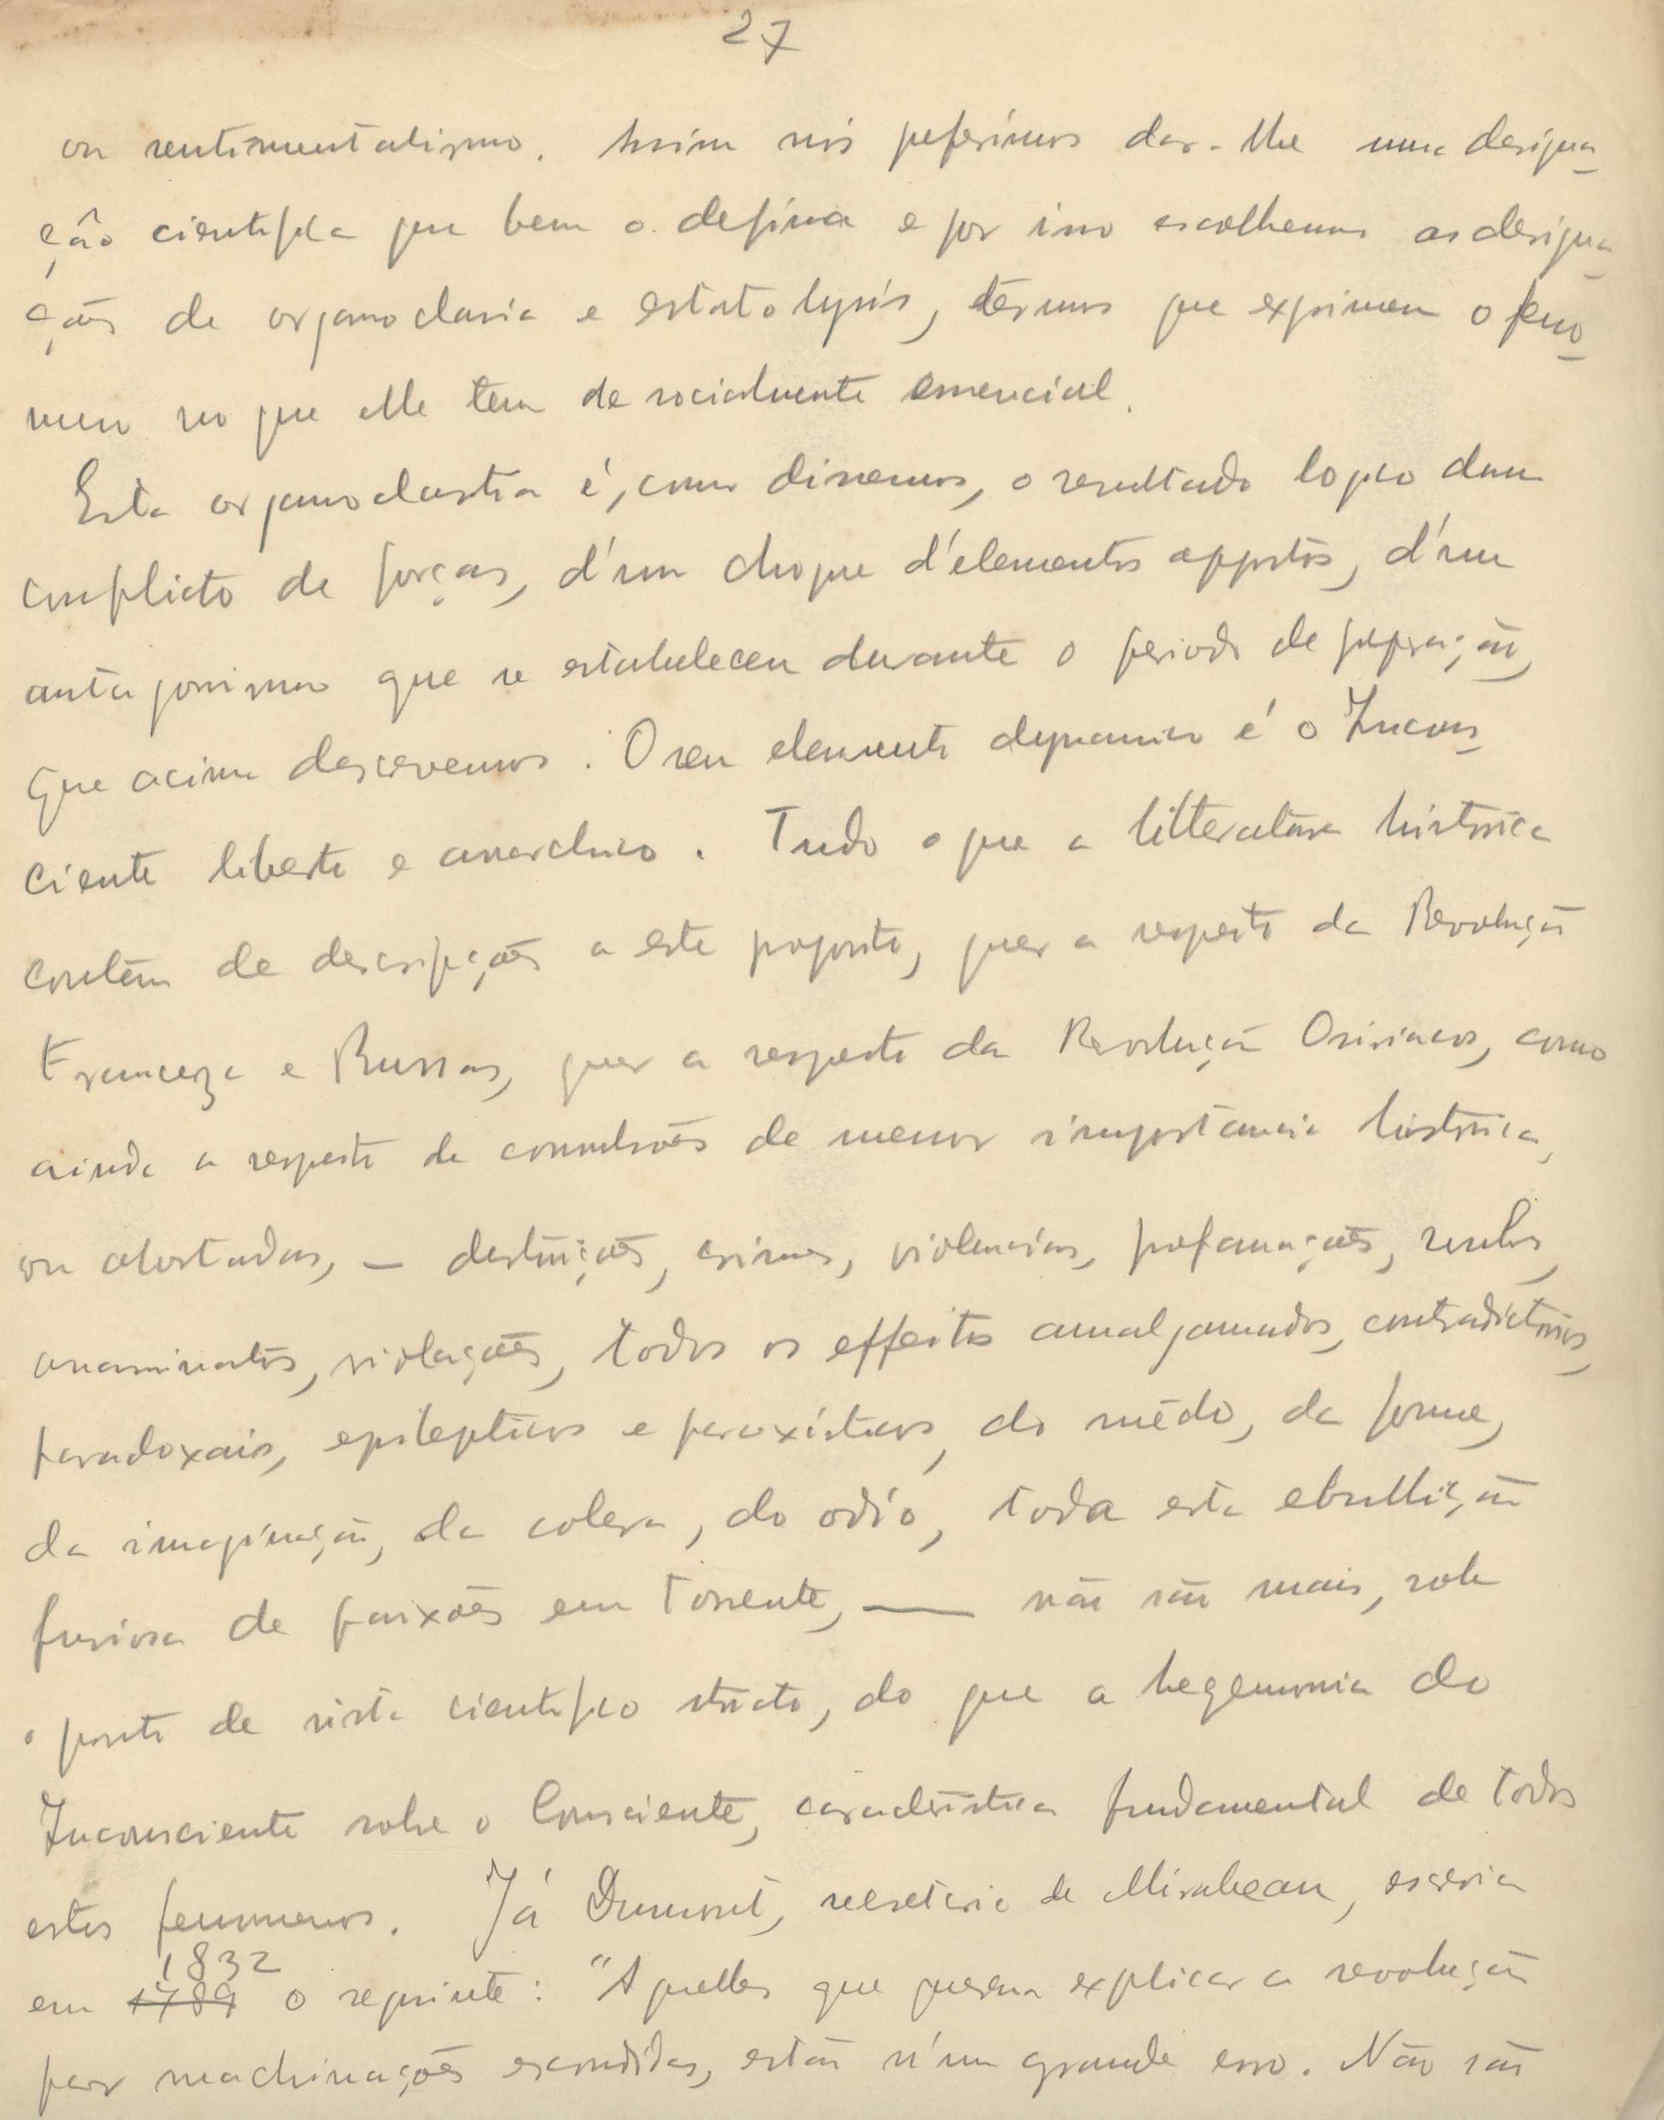 27
ou sentimentalismo. Assim nós preferimos dar-lhe uma designa-
ção cientifica que bem o defina e por isso escolhemos as designa-
ções de organoclasia e estatolysis, têrmos que exprimem o feno-
meno no que elle tem de socialmente essencial.
Esta organoclastia é, como dissemos, o resultado logico dum
conflicto de forças, d'um choque d'elementos oppostos, d'um
antagonismo que se estabeleceu durante o periodo de preparação,
que acima descrevemos. O seu elemento dynamico é o Incons-
ciente liberto e anarchico. Tudo o que a litteratura historica
contêm de descripções a este proposito, quer a respeito da Revolução
Franceza e Russas, quer a respeito da Revolução, como
ainda a respeito de convulsões de menor importancia historica,
ou abortadas, — destruições, crimes, violencias, profanações, roubos,
assassinatos, violações, todos os effeitos amalgamados, contradictorios,
paradoxais, epilepticos e paroxisticos, do mêdo, da fome,
da imaginação, da colera, do odio, toda esta ebullição
furiosa de paixões em torrente, — não são mais, sob
o ponto de vista cientifico stricto, do que a hegemonia do
Inconsciente sobre o Consciente, caracteristica fundamental de todos
estes fenomenos. Já Dumont, secretario de Mirabeau, escrevia
em 1789 1832 o seguinte: "Aquelles que querem explicar a revolução
por machinações escondidas, estão n'um grande erro. Não são